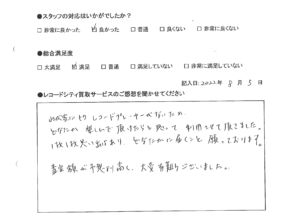 ●スタッフの対応はいかがでしたか？
□ 非常に良かった ☑ 良かった □ 普通 □ 良くない □ 非常に良くない
●総合満足度
□ 大満足 ☑ 満足 □ 普通 □ 満足していない □ 非常に満足していない
記入日:2022年 8月 5日
●レコードシティ買取サービスのご感想を聞かせてください
レコードプレーヤーがないため、
どなたか 楽しんで頂けたらと思って 利用させて頂きました。
1枚1枚思い出もあり どなたかに届くこと 願っております。
査定額が予想より高く、大変有難うございました。